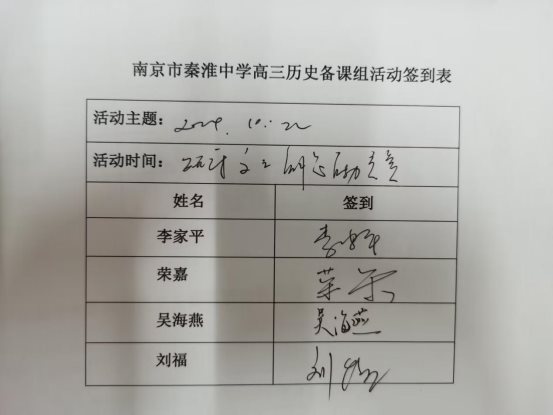 南京市秦淮中学高三历史备课组活动签到表
活动主题： 2024. 10. 22
活动时间：
姓名 签到
李家平 李家平
荣嘉
吴海燕 吴海燕
刘福 刘福